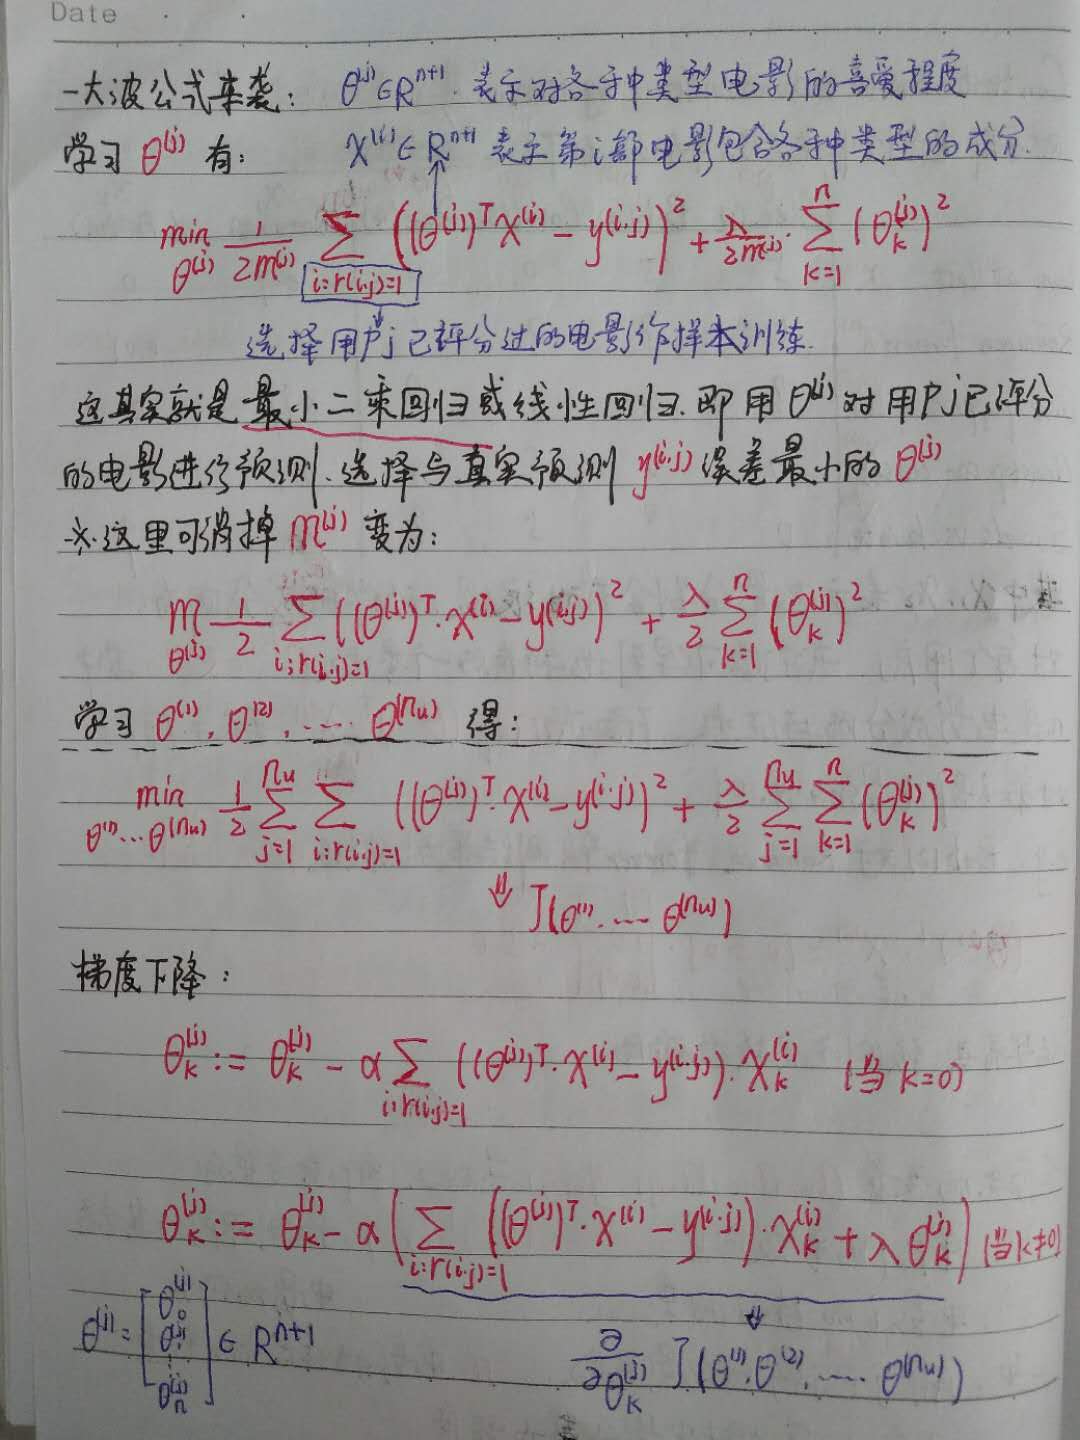 Date
一大波公式来袭: θ^(j)∈R^(n+1). 表示对各种类型电影的喜爱程度
学习 θ^(j) 有: X^(i)∈R^(n+1) 表示第i部电影包含各种类型的成分.
min_θ^(j) 1/(2m^(j)) Σ_{i:r(i,j)=1} ((θ^(j))^T X^(i) - y^(i,j))^2 + λ/(2m^(j)) · Σ_{k=1}^{n} (θ_k^(j))^2
选择用户j已评分过的电影作样本训练.
这其实就是最小二乘回归或线性回归.即用θ^(j)对用户j已评分
的电影进行预测.选择与真实预测y^(i,j)误差最小的θ^(j)
※这里可消掉m^(j)变为:
m_θ^(j) 1/2 Σ_{i:r(i,j)=1} ((θ^(j))^T · X^(i) - y^(i,j))^2 + λ/2 Σ_{k=1}^{n} (θ_k^(j))^2
学习 θ^(1), θ^(2), ···· θ^(n_u) 得:
min_{θ^(1)...θ^(n_u)} 1/2 Σ_{j=1}^{n_u} Σ_{i:r(i,j)=1} ((θ^(j))^T · X^(i) - y^(i,j))^2 + λ/2 Σ_{j=1}^{n_u} Σ_{k=1}^{n} (θ_k^(j))^2
⇓ J(θ^(1), ···· θ^(n_u))
梯度下降:
θ_k^(j) := θ_k^(j) - α Σ_{i:r(i,j)=1} ((θ^(j))^T · X^(i) - y^(i,j)) · X_k^(i) (当 k=0)
θ_k^(j) := θ_k^(j) - α ( Σ_{i:r(i,j)=1} ((θ^(j))^T · X^(i) - y^(i,j)) · X_k^(i) + λ θ_k^(j) ) (当k≠0)
⇓
θ^(j) = [θ_0^(j) θ_1^(j) ⋮ θ_n^(j)] ∈ R^(n+1)
∂/∂θ_k^(j) J(θ^(1), θ^(2), ···· θ^(n_u))